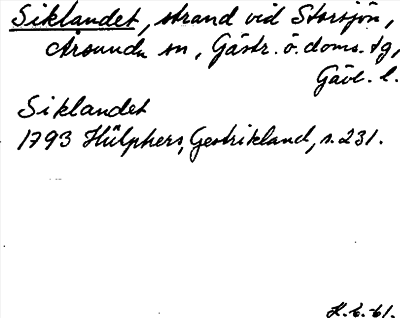 Siklandet, strand vid Storsjön,
Årsunda sn, Gästr. ö. doms. tg,
Gävl. l.
Siklandet
1793 Hülphers, Gestrikland, s. 231.
H. E. -61.